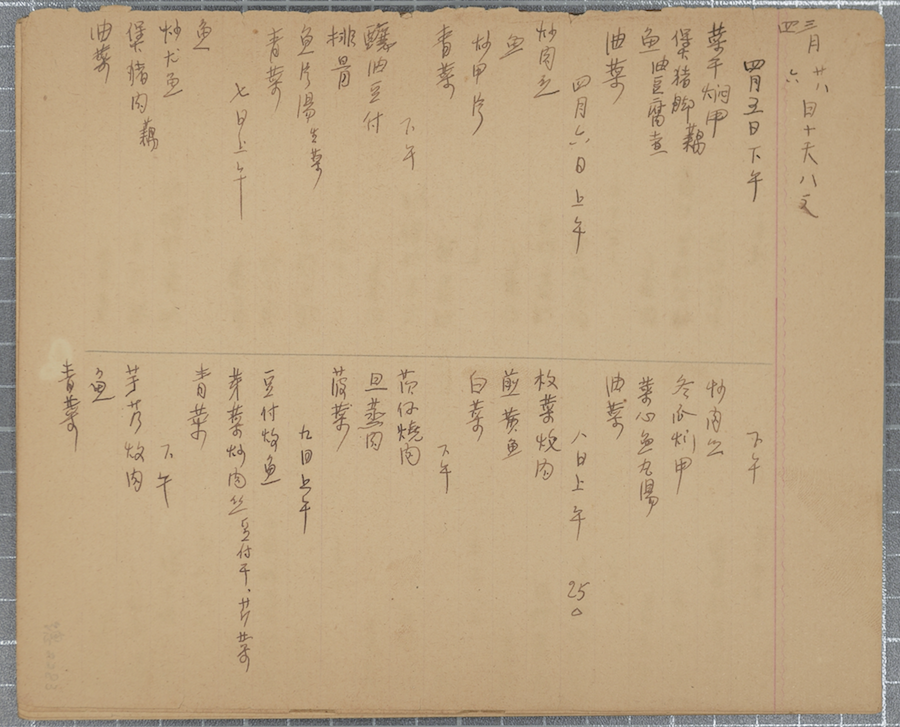 三月廿八日十天八文
四 六
四月五日下午
菜干焖甲
煲猪脚藕
鱼油豆腐煮
油菜
四月六日上午
炒肉
鱼
炒甲片
青菜
下午
釀油豆付
排骨
鱼片湯生菜
青菜
七日上午
鱼
炒尤鱼
煲猪肉藕
油菜
下午
炒肉
冬瓜焖甲
菜心鱼丸湯
油菜
八日上午 250
枚菜炆肉
煎黄鱼
白菜
下午
茨仔燒肉
旦蒸肉
菠菜
九日上午
豆付炆鱼
芽菜炒肉丝豆付干、芹菜
青菜
下午
芋芿炆肉
鱼
青菜